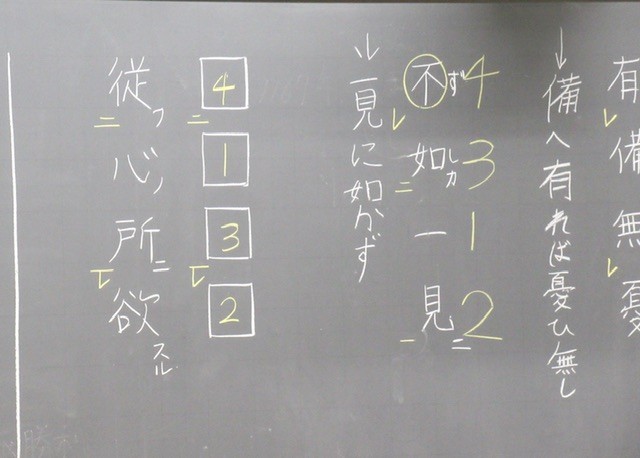 有レ備無レ憂
↓備へ有れば憂ひ無し
4312
不ずレ如しカ二一見ニ一
↓一見に如かず
4二13レ2
従フ二心ノ所ニレ欲スル